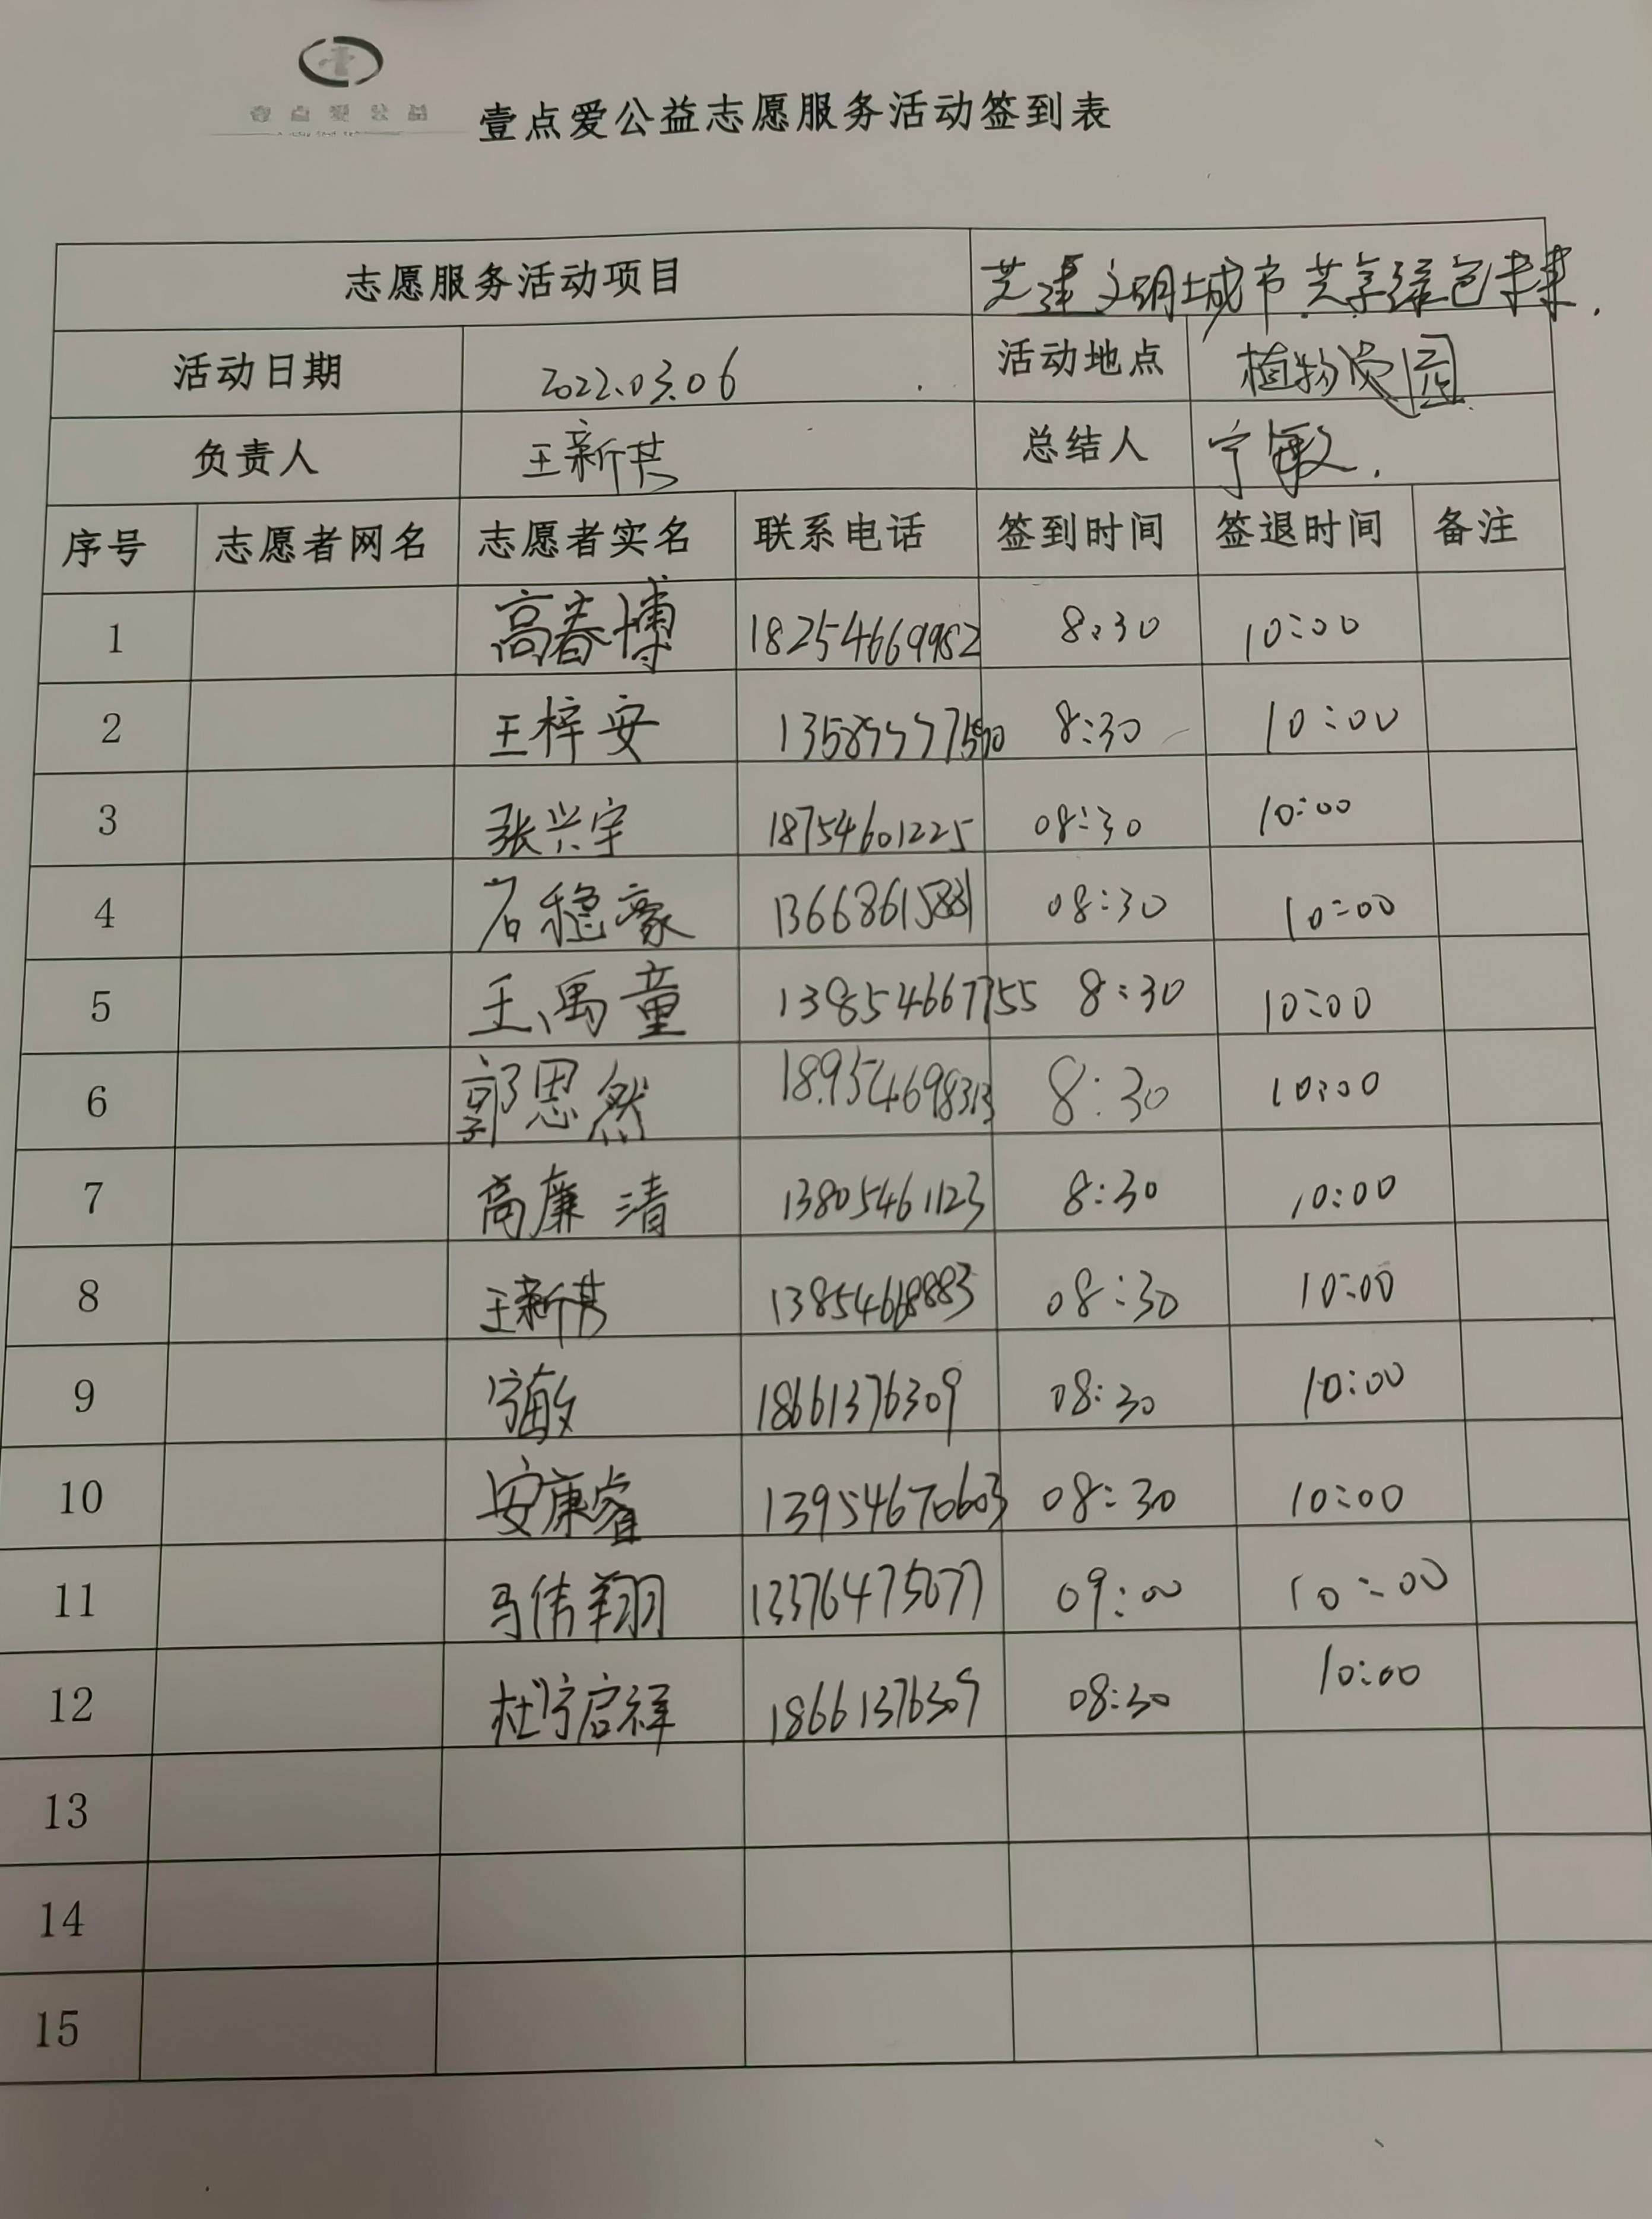 壹点爱公益
壹点爱公益志愿服务活动签到表
志愿服务活动项目 共建文明城市 共享绿色未来.
活动日期 2022.03.06 活动地点 植物园
负责人 王新芸 总结人 宁敏.
序号 志愿者网名 志愿者实名 联系电话 签到时间 签退时间 备注
1 高春博 18254669982 8:30 10:00
2 王梓安 8:30 10:00
3 张兴宇 18754601225 08:30 10:00
4 石稳豪 08:30 10:00
5 王禹童 13854667755 8:30 10:00
6 郭恩然 8:30 10:00
7 高廉清 13805461123 8:30 10:00
8 王新芸 13854668883 08:30 10:00
9 宁敏 18661376309 08:30 10:00
10 安康睿 13954670603 08:30 10:00
11 马伟翔 13376475077 09:00 10:00
12 杜宁启祥 18661376309 08:30 10:00
13
14
15